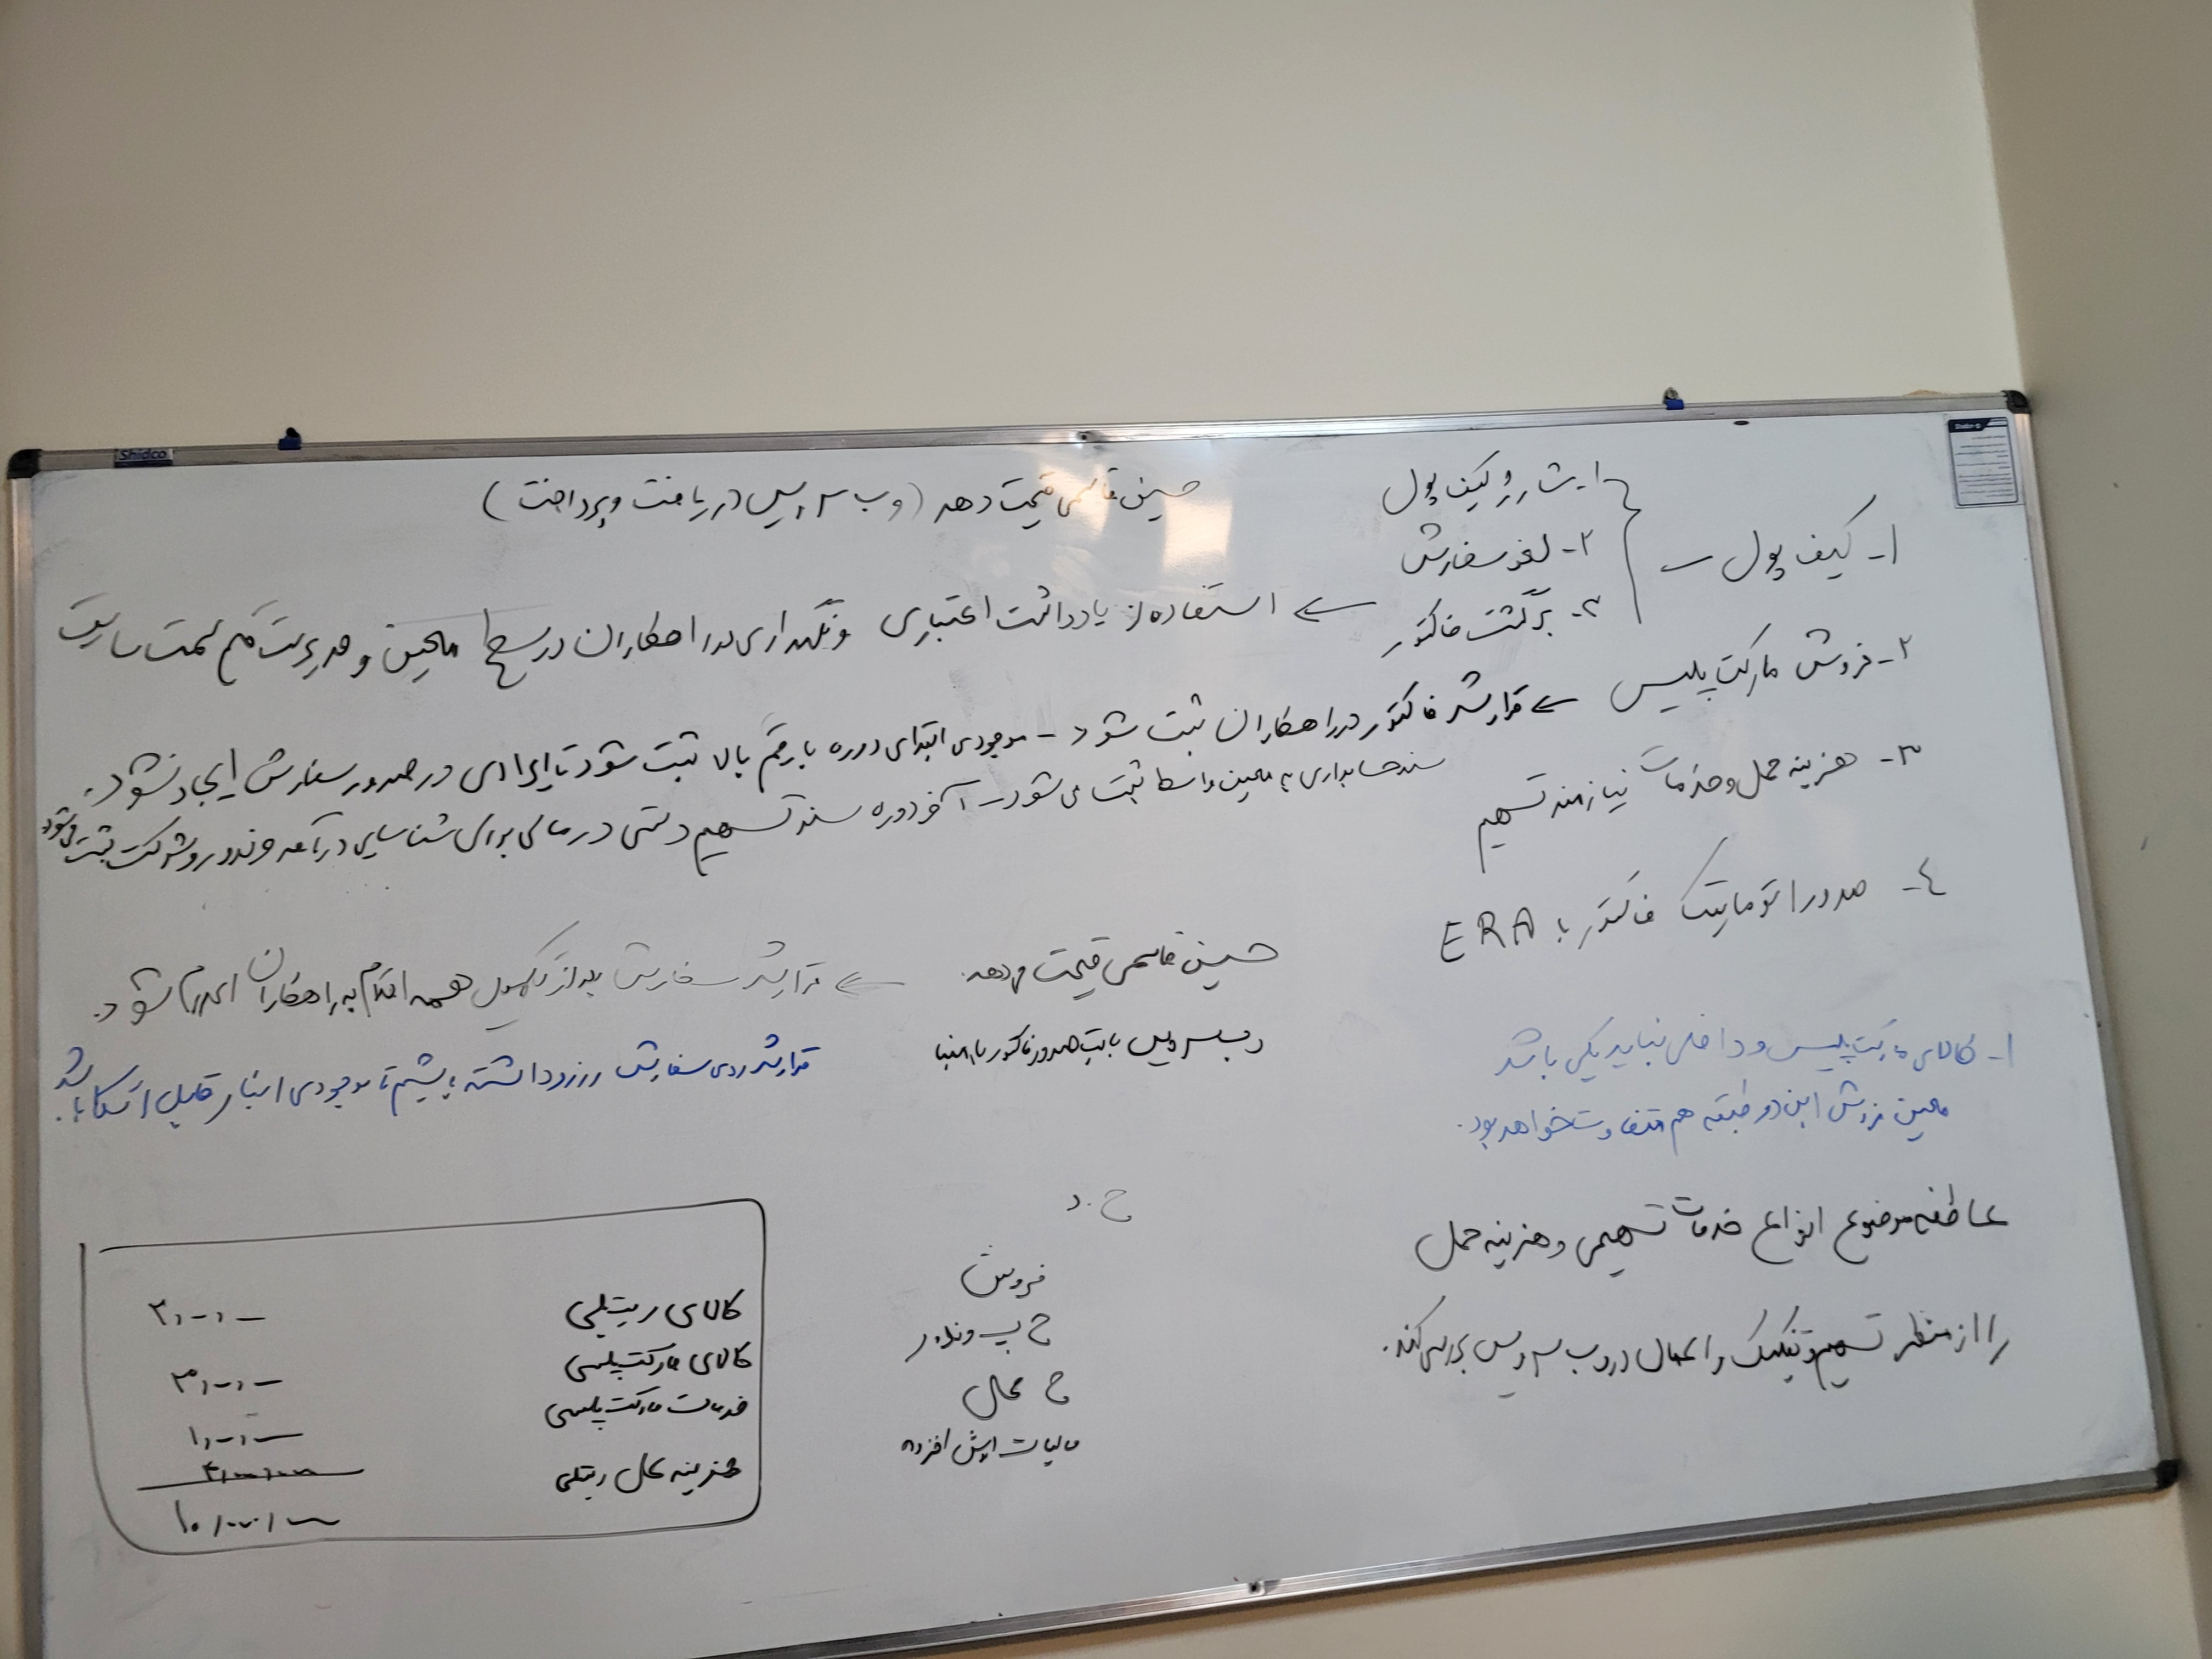 Shidco
۱- کیف پول
۱- شارژ کیف پول
۲- لغو سفارش
۳- برگشت فاکتور
حسین قاسمی قیمت دهد (وب سرویس دریافت و پرداخت)
← استفاده از یادداشت اعتباری و نگهداری در راهکاران در سطح معین و مدیریت رقم سمت سایت
۲- فروش مارکت پلیس ← قرار شد فاکتور در راهکاران ثبت شود - موجودی ابتدای دوره با رقم بالا ثبت شود تا ایرادی در صدور سفارش ایجاد نشود.
سند حسابداری به معین واسط ثبت می شود - آخر دوره سند تسهیم دستی در مالی برای شناسایی درآمد وندور و شرکت ثبت می شود
۳- هزینه حمل و خدمات نیازمند تسهیم
۴- صدور اتوماتیک فاکتور با ERA
حسین قاسمی قیمت می دهد.
← قرار شد سفارش بعد از تکمیل همه اقلام به راهکاران اعلام شود.
وب سرویس بابت صدور فاکتور با مبنا
قرار شد روی سفارش رزرو داشته باشیم تا موجودی انبار قابل اتکا باشد.
۱- کالای مارکت پلیس و داخلی نباید یکی باشد
معین فروش این دو طبقه هم متفاوت خواهد بود.
عاطفه موضوع انواع خدمات تسهیمی و هزینه حمل
را از منظر تسهیم و تفکیک و اعمال در وب سرویس بررسی کند.
ح.د
فروش
ح پ وندور
ح حمل
مالیات ارزش افزوده
کالای ریتیلی ۲,۰۰۰,۰۰۰
کالای مارکت پلیسی ۳,۰۰۰,۰۰۰
خدمات مارکت پلیسی ۱,۰۰۰,۰۰۰
هزینه حمل ریتیلی ۴,۰۰۰,۰۰۰
۱۰,۰۰۰,۰۰۰